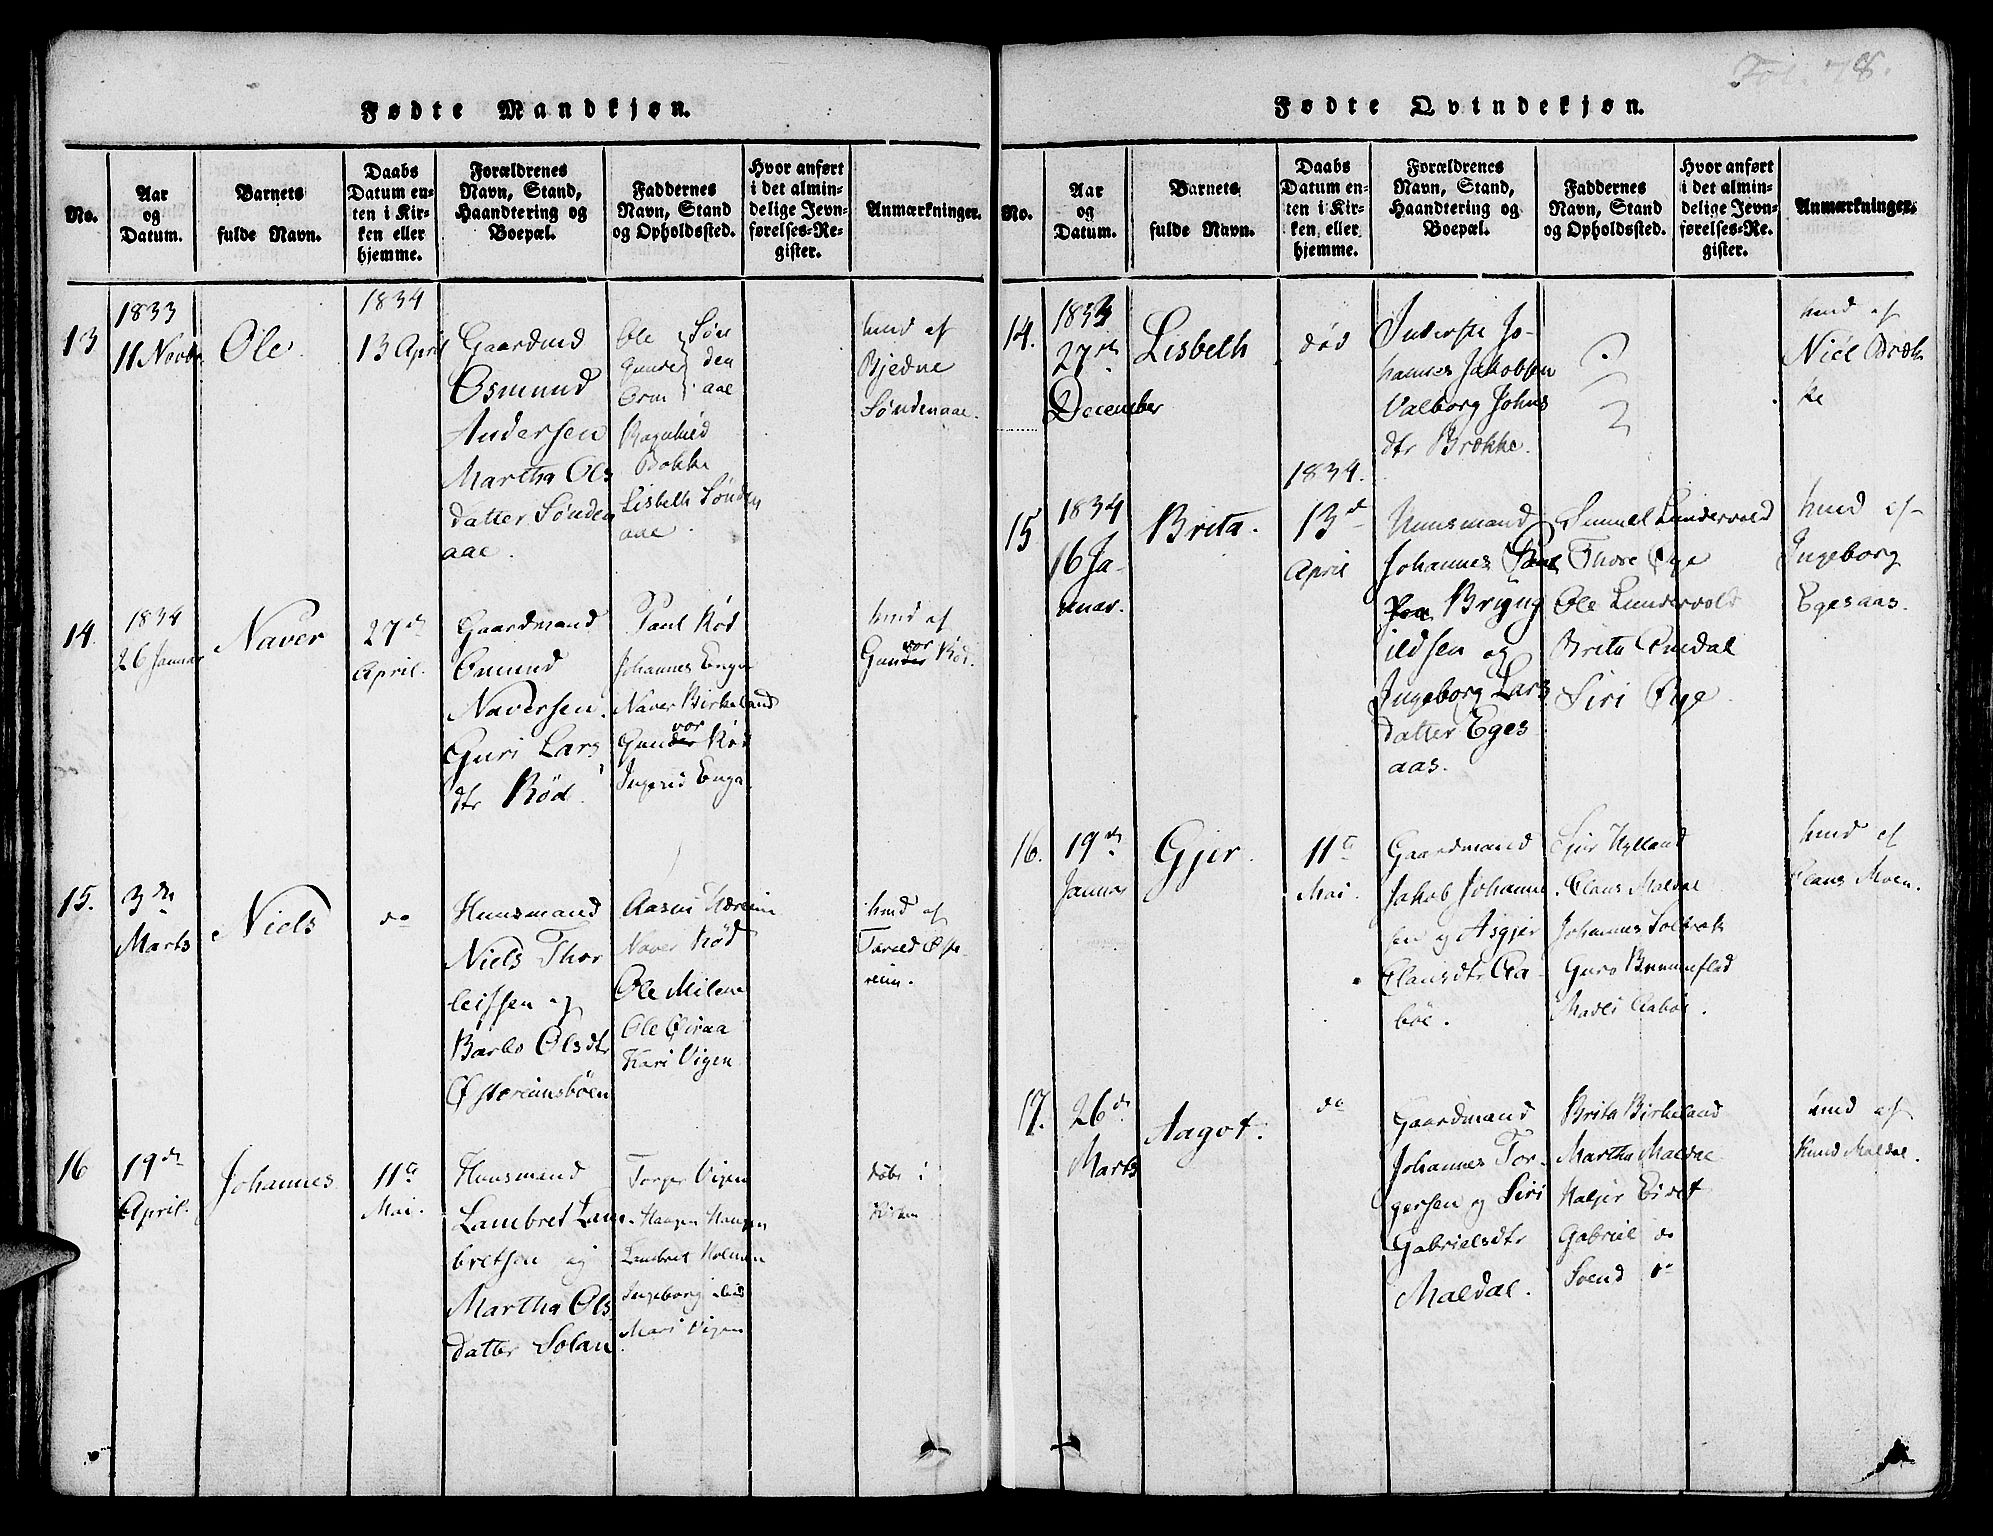 Fol. 78.
Fødte Mandkjøn.
No.
Aar
og
Datum.
Barnets
fulde Navn.
Daabs
Datum en-
ten i Kir-
ken eller
hjemme.
Forældrenes
Navn, Stand,
Haandtering og
Boepæl.
Faddernes
Navn, Stand
og Opholdssted.
Hvor anført
i det almin-
delige Jevn-
førelses-Re-
gister.
Anmærkninger.
13
1833
11 Novbr.
Ole.
1834
13 April
Gaardmd
Osmund
Andersen
Martha Ols
datter Sønden
aae.
Ole
Gunder
Orm
Søn
den
aae
Ragnhild
Bakke
Lisbeth Sønden
aae.
hmd af
Bjedne
Søndenaae.
14.
1834
26 Januar
Naver
27de
April.
Gaardmand
Osmund
Naversen.
Guri Lars
dtr Rød.
Paul Rød
Johannes Enga
Naver Birkeland
Gunvor Rød
Ingerid Enga
hmd af
Gunvor Rød.
15.
3die
Marts
Niels
do
Huusmand
Niels Thor
leifsen og
Barbo Olsdtr
Østareimsbøen
Naver Rød
Ole Milene
Ole Øiraa
Kari Vigen
hmd af
Torald Østa
reim.
16
19de
April.
Johannes
11te
Mai.
Huusmand
Lambret Lam-
bretsen og
Martha Ols
datter Solan
Torger Vigen
Haagen Haagen
Lambret Holmen
Ingeborg ibid
Mari Vigen
døbt i
Kirken
Fødte Qvindekjøn.
No.
Aar
og
Datum.
Barnets
fulde Navn.
Daabs
Datum en-
ten i Kir-
ken eller
hjemme.
Forældrenes
Navn, Stand,
Haandtering og
Boepæl.
Faddernes
Navn, Stand
og Opholdssted.
Hvor anført
i det almin-
delige Jevn-
førelses-Re-
gister.
Anmærkninger.
14.
1833
27de
December
Lisbeth
død
Inderste Jo-
hannes Jakobsen
Valborg Johns
dtr Brække.
?
?
hmd af
Niel Bræk
ke
15
1834
16 Ja-
nuar.
Brita.
1834.
13de
April
Huusmand
Johannes
Bryng
ildsen og
Ingeborg Lars
datter Eges
aas.
Samuel Lundervold
Thore Øye
Ole Lundervold
Brita Omdal
Siri Øye
hmd af
Ingeborg
Egesaas.
16.
19de
Januar
Gjer.
11te
Mai.
Gaardmand
Jakob Johanne
sen og Asgjer
Clausdtr Aa-
bøe.
Gjer Hylland
Claus Maldal
Johannes Solbræk
Guro Brummeflod
Madli Aabøe.
hmd af
Claus Moen.
17.
26de
Marts
Aagot.
do
Gaardmand
Johannes Tor-
gersen og Siri
Gabrielsdtr
Maldal.
Brita Birkeland
Martha Maldal
Haljer Eivet
Gabriel do
Svend do
hmd af
Knud Maldal.